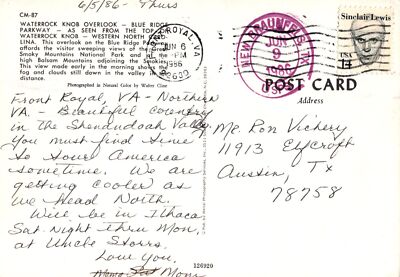 6/5/86 - Thurs
CM-87
WATERROCK KNOB OVERLOOK - BLUE RIDGE
PARKWAY - AS SEEN FROM THE TOP OF
WATERROCK KNOB - WESTERN NORTH CARO-
LINA. This overlook on the Blue Ridge Parkway
affords the visitor sweeping views of the
Smoky Mountains National Park and the
high Balsam Mountains adjoining the Smokies.
This view made early in the morning shows the
fog and clouds still down in the valley in
distance.
Photographed in Natural Color by Walter Cline
FRONT ROYAL, VA
JUN 6
PM
1986
22630
NEW BRAUNFELS, TX
JUN
9
1986
USPO
Sinclair Lewis
USA
14
POST CARD
Address
Front Royal, VA - Northern
VA - Beautiful country
in the Shenandoah Valley
You must find time
to tour America
sometime. We are
getting cooler as
we head North.
Will be in Ithaca
Sat. Night thru Mon.
at Uncle Storrs.
Love you,
Mom
Mr. Ron Vickery
11913 Elfcroft
Austin, Tx
78758
126920